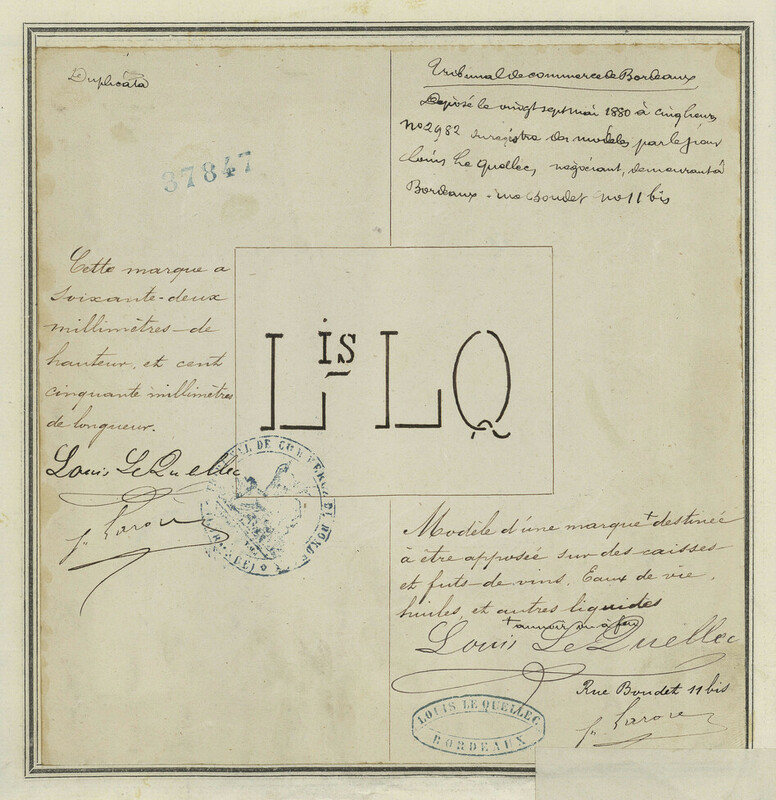 Duplicata
37847
Tribunal de commerce de Bordeaux
Déposé le vingt sept mai 1880 à cinq heures
No 2982 du registre des modèles par le sieur
Louis Le Quellec, négociant, demeurant à
Bordeaux - rue Boudet no 11 bis
Cette marque a
soixante-deux
millimètres de
hauteur, et cent
cinquante millimètres
de longueur.
Louis Le Quellec
Lis LQ
TRIBUNAL DE COMMERCE DE BORDEAUX
Modèle d'une marque + destinée
à être apposée sur des caisses
et futs de vins, Eaux de vie,
huiles, et autres liquides
+ au noir ou à feu
Louis Le Quellec
Rue Boudet 11 bis
LOUIS LE QUELLEC
BORDEAUX